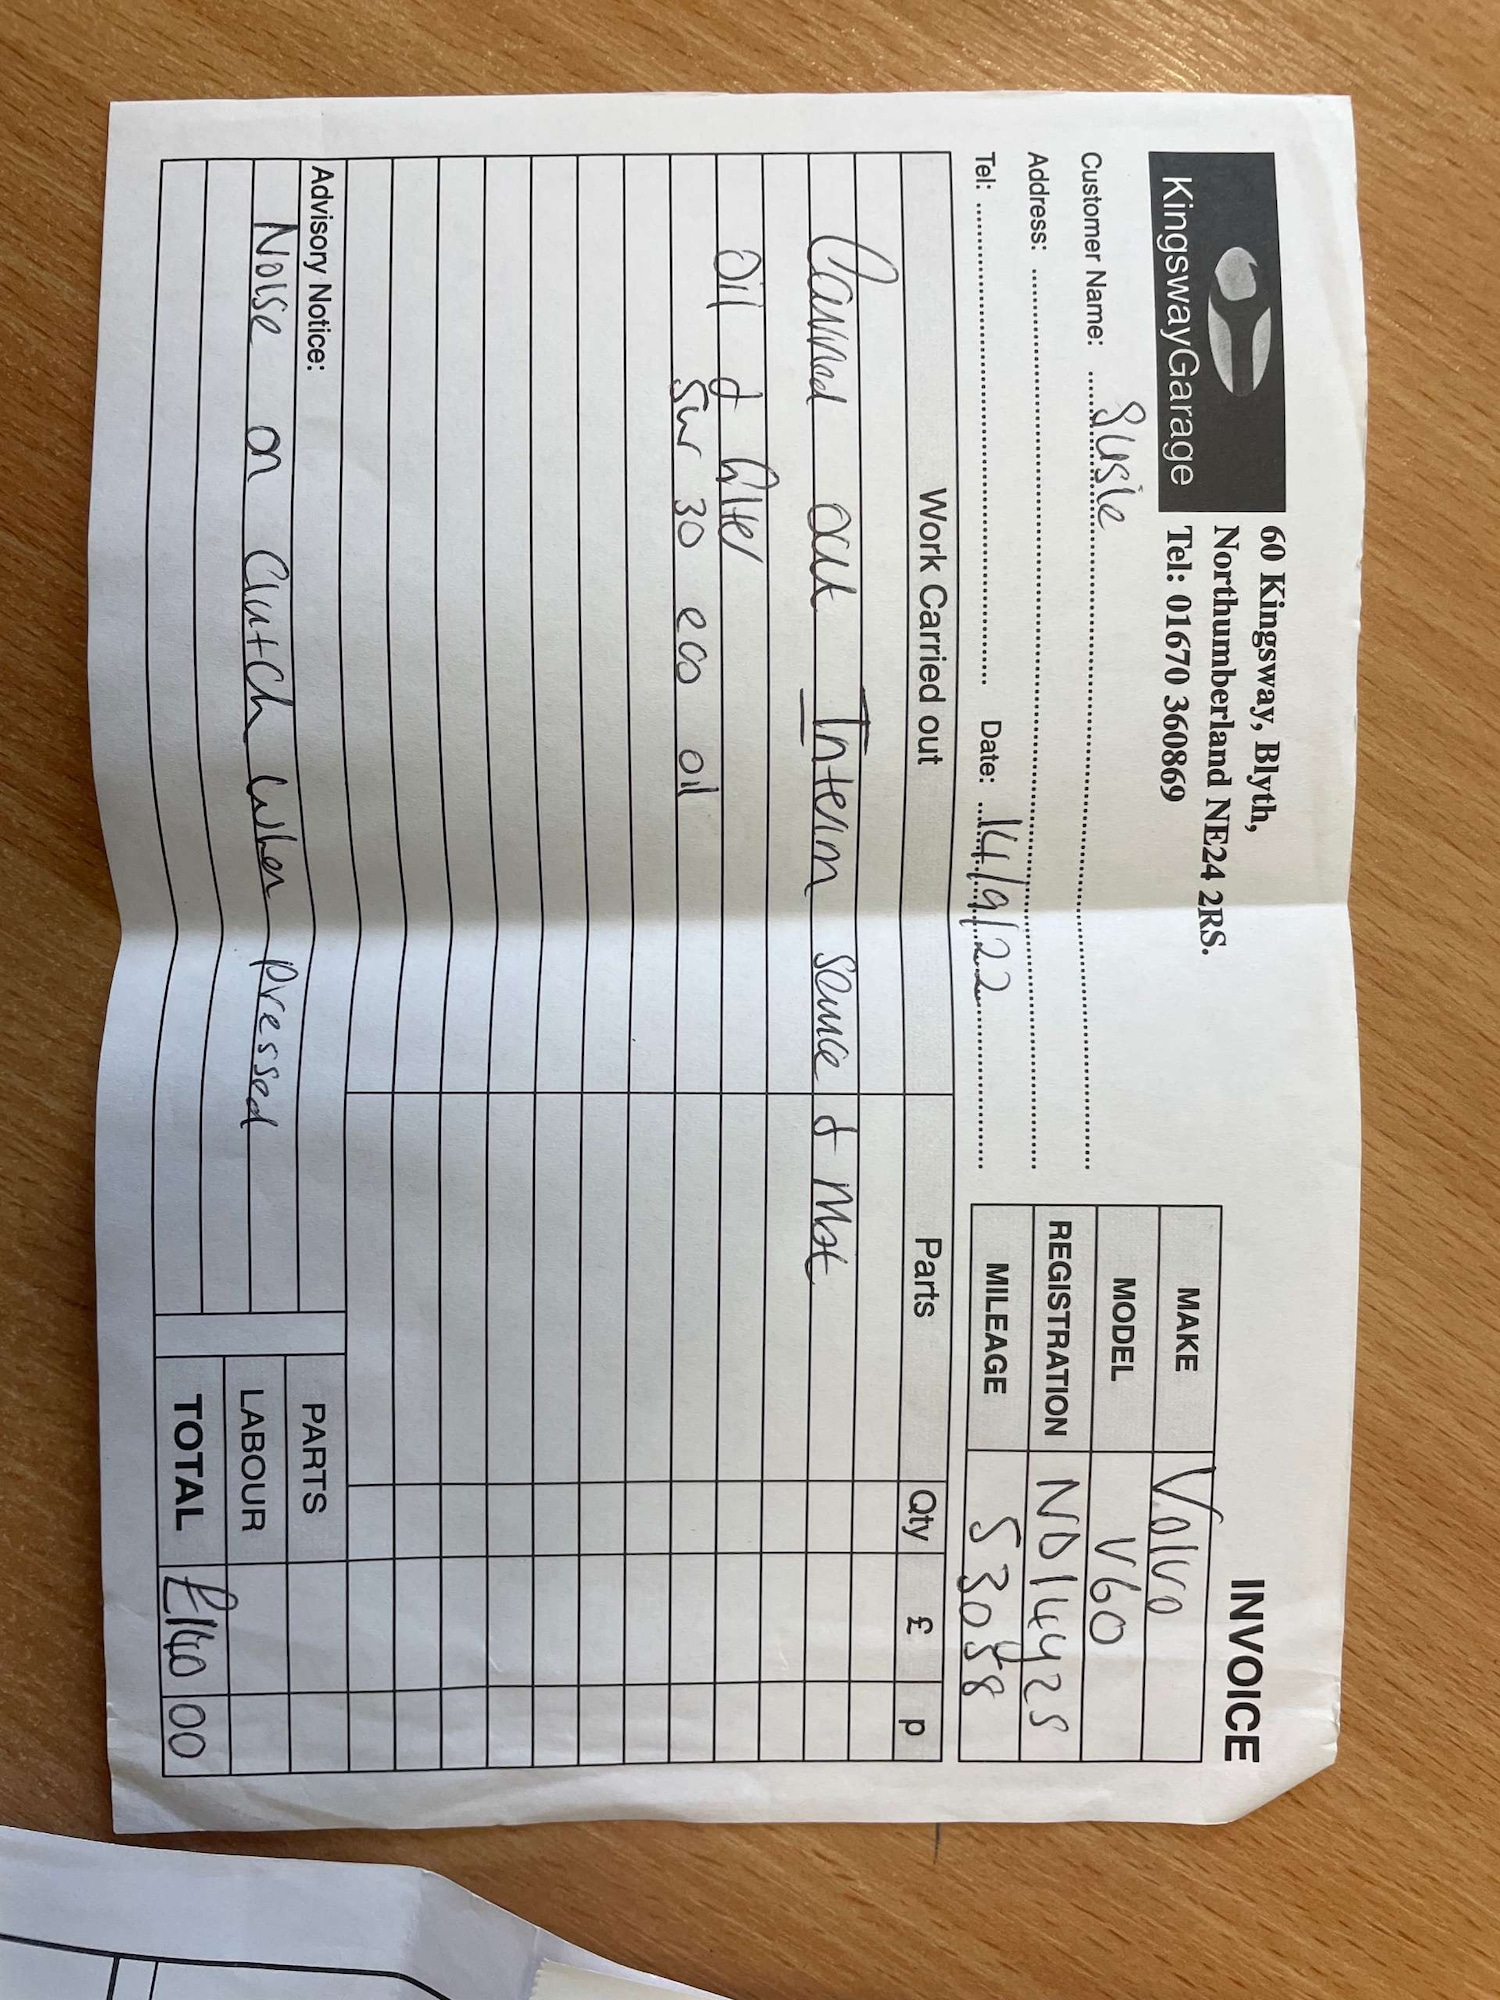 KingswayGarage
60 Kingsway, Blyth,
Northumberland NE24 2RS.
Tel: 01670 360869
INVOICE
Customer Name: Susie
Address:
Tel: Date: 14/9/22
MAKE Volvo
MODEL V60
REGISTRATION ND14YZS
MILEAGE 53058
Work Carried out Parts Qty £ p
Carried out Interim service & Mot
Oil & filter
5w 30 eco oil
Advisory Notice:
Noise on Clutch when pressed
PARTS
LABOUR
TOTAL £140 00